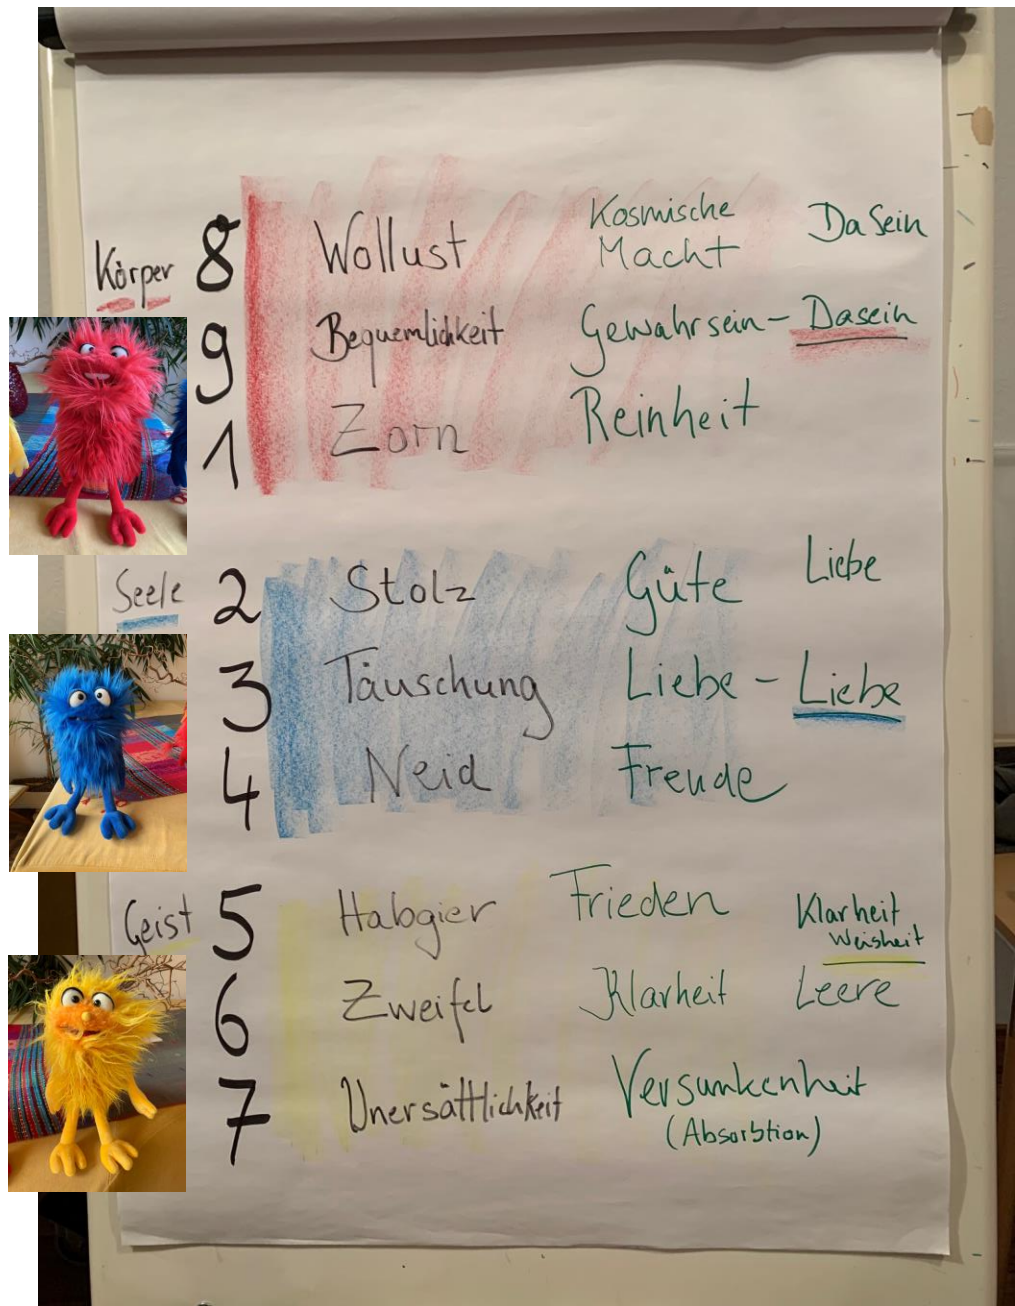 Körper 8 Wollust Kosmische Macht DaSein
9 Bequemlichkeit Gewahrsein - Dasein
1 Zorn Reinheit
Seele 2 Stolz Güte Liebe
3 Täuschung Liebe - Liebe
4 Neid Freude
Geist 5 Habgier Frieden Klarheit Weisheit
6 Zweifel Klarheit Leere
7 Unersättlichkeit Versunkenheit
(Absorbtion)